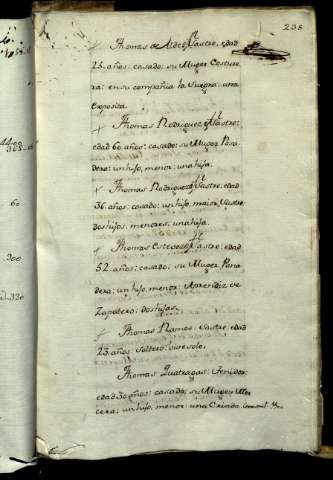 238
Thomas de Sastre, edad
25. años: casado: su Muger Costure
ra: en su compañia la Suegra: una
Exposita.
Thomas Rodriguez Sastre:
edad 60 años: casado: su Muger Pana
dera: un hijo, menor: una hija.
Thomas Rodriguez Sastre, edad
36. años: casado: un hijo, maior, Sastre
dos hijos, menores: una hija.
Thomas Estevez Sastre: edad
52. años: casado: su Muger Pana
dera: un hijo, menor: Aprendiz de
Zapatero: dos hijas.
Thomas Ramos. Sastre, edad
23. años. Soltero: vive solo.
Thomas Texedor:
edad 30 años: casado: su Muger Mer
cera: un hijo, menor: una Criada.
60
300
320